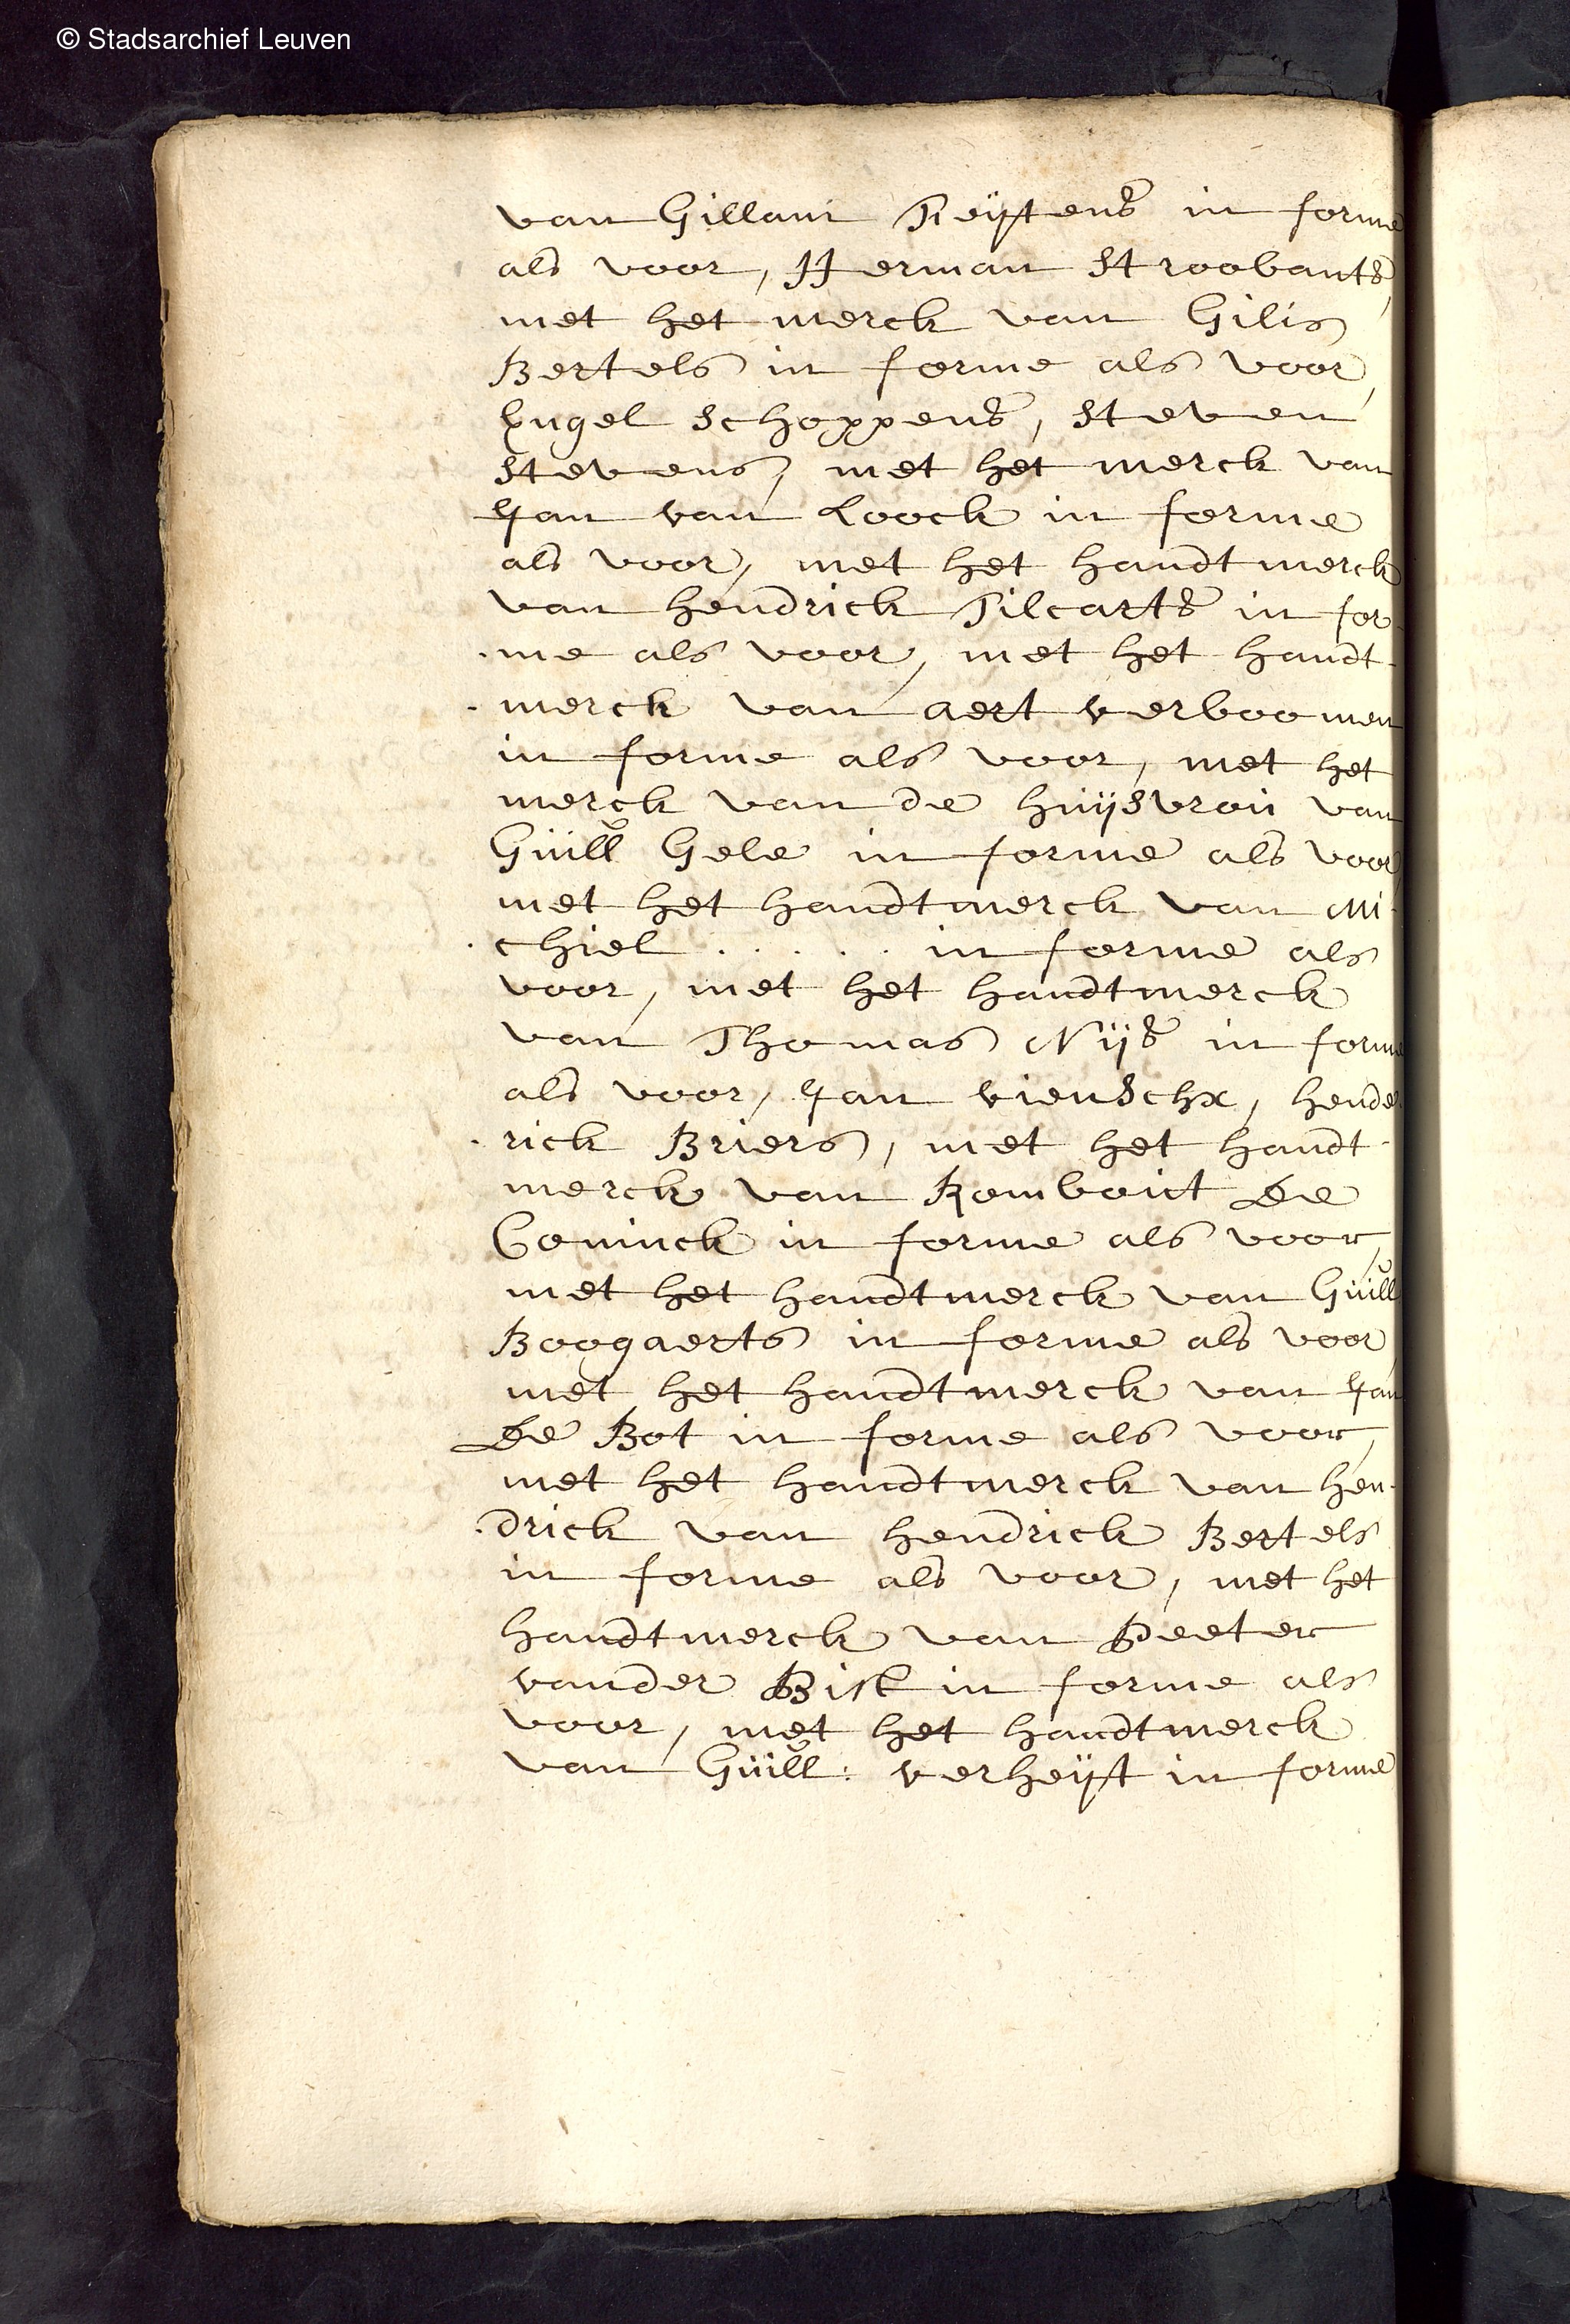 © Stadsarchief Leuven
van Gillam Feijtens in forme
als voor, Herman Stroobants,
met het merck van Gilis
Bertels in forme als voor,
Engel Schoppens, Steven
Stevens, met het merck van
Jan van Loock in forme
als voor, met het handtmerck
van hendrick Tilcarts in for-
-me als voor, met het handt-
-merck van aert verboomen
in forme als voor, met het
merck van de huijsvrou van
Guill Gele in forme als voor,
met het handtmerck van Mi-
-chiel . . . . . in forme als
voor, met het handtmerck
van Thomas Nijs in forme
als voor, Jan vienschx, hende-
-rick Briers, met het handt-
merck van Rombout De
Coninck in forme als voor,
met het handtmerck van Guill
Boogaerts in forme als voor,
met het handtmerck van Jan
De Bot in forme als voor,
met het handtmerck van hen-
-drick van hendrick Bertels
in forme als voor, met het
handtmerck van Peeter
vander Bist in forme als
voor, met het handtmerck
van Guill: verheijt in forme